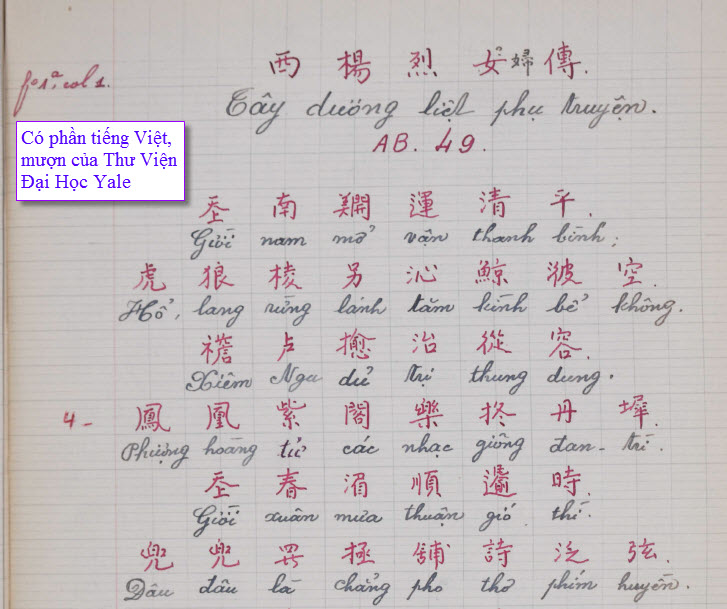 西 楊 烈 女 婦 傳.
fo 1a, col 1.
Tây dương liệt phụ truyện.
AB. 49.
Có phần tiếng Việt,
mượn của Thư Viện
Đại Học Yale
𡗶 南 運 清 平.
Giời nam mở vận thanh bình;
虎 狼 棱 另 沁 鯨 空.
Hổ, lang rừng lánh tăm kình bể không.
襜 卢 治 從 容.
Xiêm Nga dử trị thung dung.
4- 鳳 凰 紫 閣 樂 丹 墀.
Phượng hoàng tử các nhạc giồng đan-trì.
𡗶 春 湄 順 時.
Giời xuân mưa thuận gió thì.
兜 兜 極 舖 詩 泛 弦.
Dâu dâu là chẳng pho thơ phím huyền.